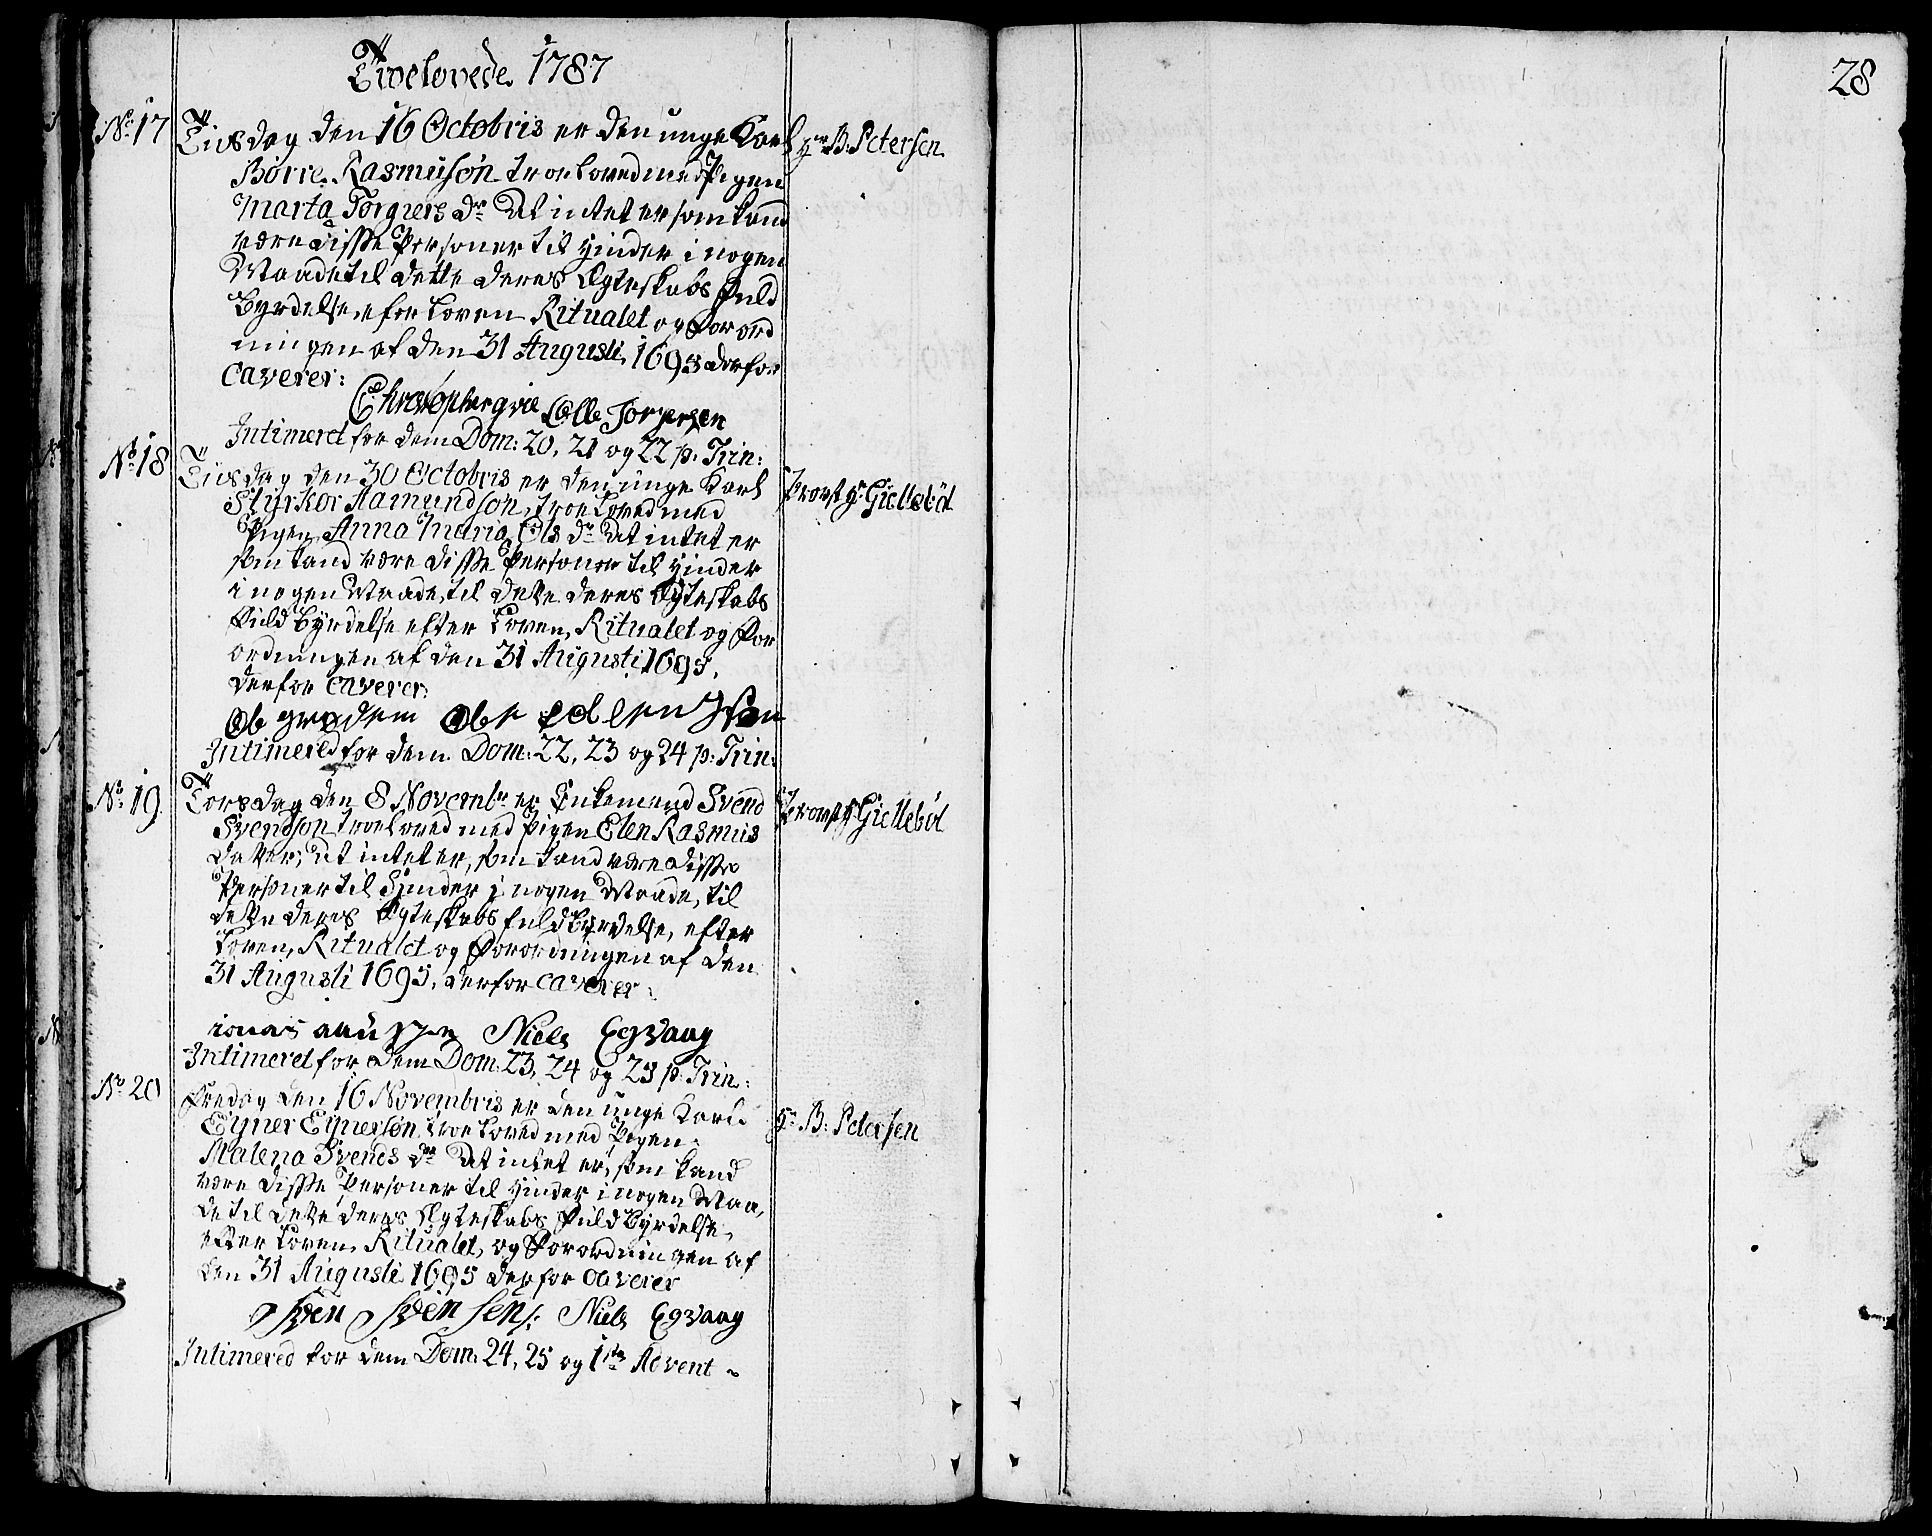 Troelovede 1787
28
No. 17
Tirsdag den 16 Octobris er den unge Karl
Hr. B. Petersen
Börre Rasmusön troeloved med Pigen
Marta Torgiers Dr. At intet er som kand
være disse Personer til Hinder i nogen
Maade til dette deres Ægteskabs Fuld
byrdelse efter Loven Ritualet og Forord
ningen af den 31 Augusti 1695 derfor
caverer:
Christopher qvie Olle Torgersen
Intimeret for dem Dom: 20, 21 og 22 p. Trin:
No. 18
Tirsdag den 30 Octobris er den unge Karl
Provst Hr. Gielleböl
Styrkor Aamundsön, troeloved med
Pigen Anna Maria Ols Dr. At intet er
som kand være disse Personer til Hinder
i nogen Maade, til dette deres Ægteskabs
Fuldbyrdelse efter Loven, Ritualet og For
ordningen af den 31 Augusti 1695,
derfor caverer:
Ole
Intimered for dem Dom: 22, 23 og 24 p: Trin:
No. 19.
Torsdag den 8 Novembr. er Enkemand Svend
Provst Hr. Gielleböl
Svendson troeloved med Pigen Elen Rasmus
datter; At intet er, som kand være disse
Personer til Hinder i nogen Maade, til
dette deres Ægteskabs fuldbyrdelse, efter
Loven, Ritualet og Forordningen af den
31 Augusti 1695, derfor caverer:
ionas Niels Egvaag
Intimeret for dem Dom. 23, 24 og 25 p. Trin:
No. 20
Fredag den 16 Novembris er den unge Karl
Hr. B. Petersen
Ejner Ejnersön troeloved med Pigen
Malena Svends Dr. At intet er, som kand
være disse Personer til Hinder i nogen Maa,
de til dette deres Ægteskabs Fuldbyrdelse,
efter Loven, Ritualet, og Forordningen af
den 31 Augusti 1695 derfor caverer
Sven Svensen: Niels Egvaag
Intimered for dem Dom. 24, 25 og 1ste Advent